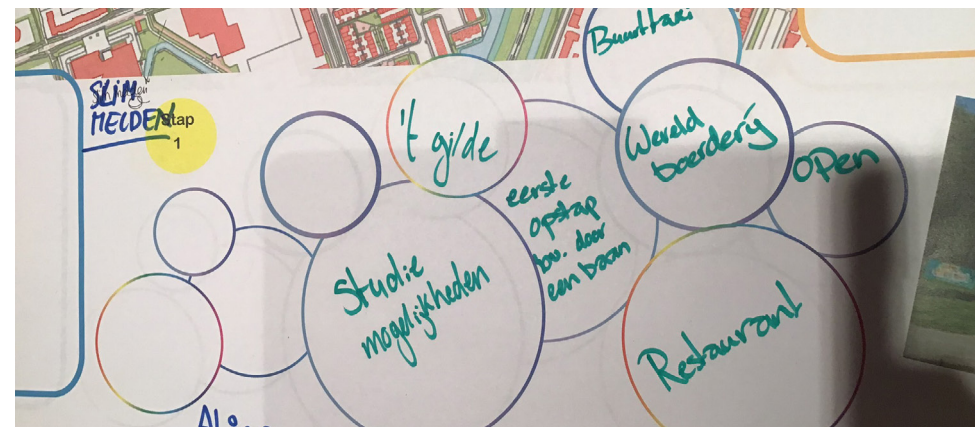 Buurttaxi
SLIM
MELDEN
Stap
1
't gilde
Wereld
boerderij
open
eerste
opstap
bv. door
een baan
Studie
mogelijkheden
Restaurant